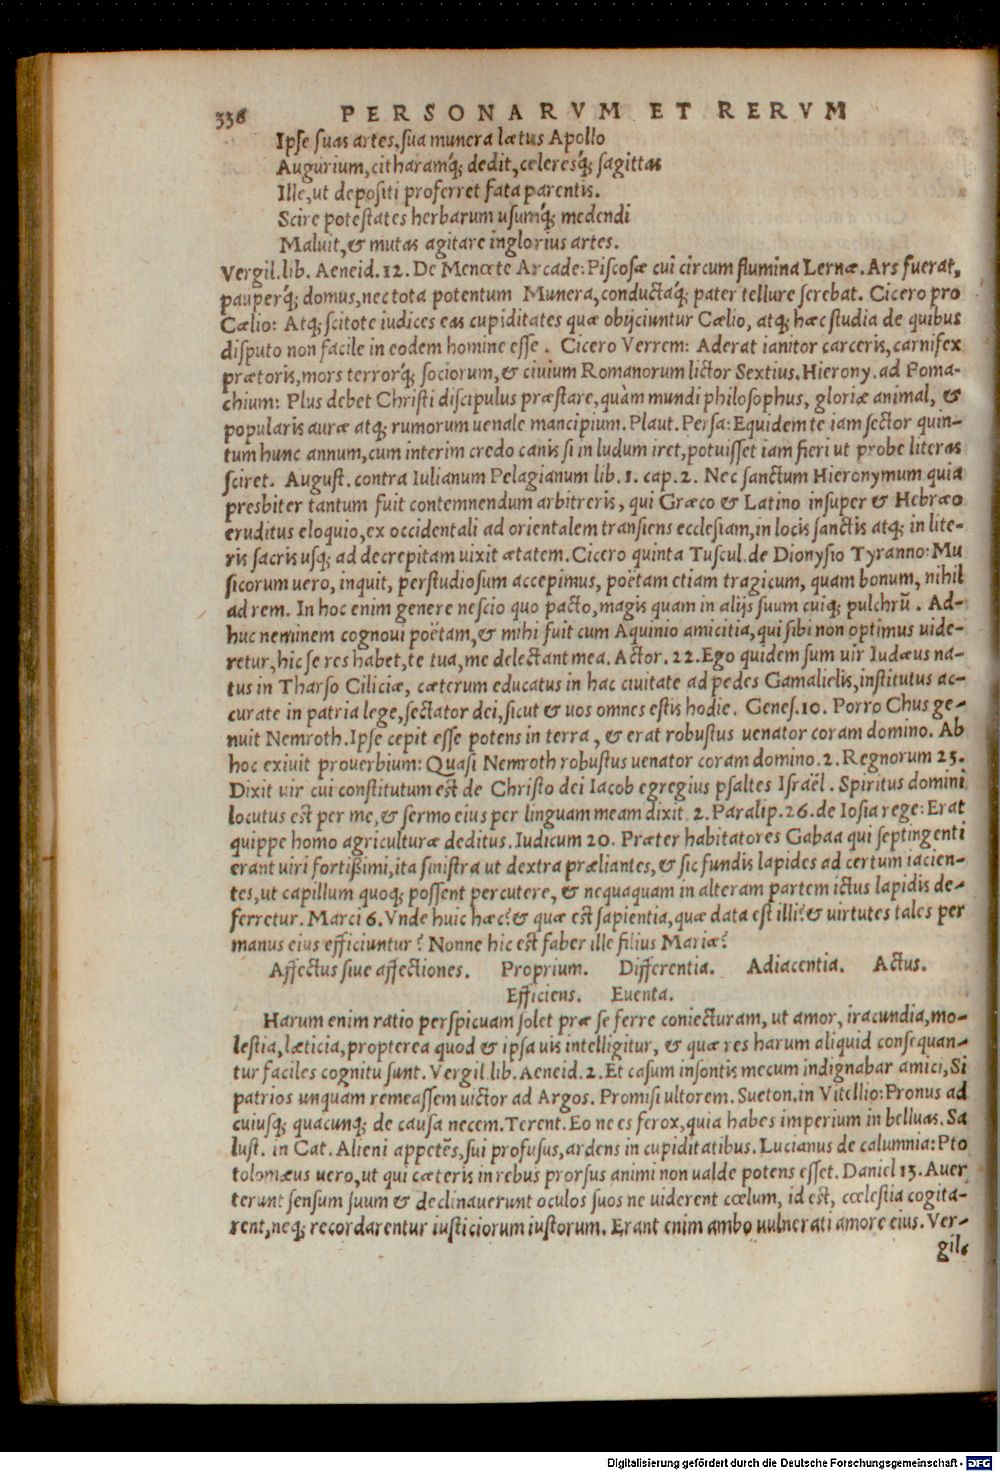 336 PERSONARVM ET RERVM
Ipse suas artes, sua munera lætus Apollo
Augurium, citharamq́; dedit, celeresq́; sagittas
Ille, ut depositi proferret fata parentis.
Scire potestates herbarum usumq́; medendi
Maluit, & mutas agitare inglorius artes.
Vergil. lib. Aeneid. 12. De Menœte Arcade: Piscosæ cui circum flumina Lernæ. Ars fuerat,
pauperq́; domus, nec tota potentum Munera, conductaq́; pater tellure serebat. Cicero pro
Cælio: Atq; scitote iudices eas cupiditates quæ obijciuntur Cælio, atq; hæc studia de quibus
disputo non facile in eodem homine esse. Cicero Verrem: Aderat ianitor carceris, carnifex
prætoris, mors terrorq́; sociorum, & ciuium Romanorum lictor Sextius. Hierony. ad Poma-
chium: Plus debet Christi discipulus præstare, quàm mundi philosophus, gloriæ animal, &
popularis auræ atq; rumorum uenale mancipium. Plaut. Persa: Equidem te iam sector quin-
tum hunc annum, cum interim credo canis si in ludum iret, potuisset iam fieri ut probe literas
sciret. August. contra Iulianum Pelagianum lib. 1. cap. 2. Nec sanctum Hieronymum quia
presbiter tantum fuit contemnendum arbitreris, qui Græco & Latino insuper & Hebræo
eruditus eloquio, ex occidentali ad orientalem transiens ecclesiam, in locis sanctis atq; in lite-
ris sacris usq; ad decrepitam uixit ætatem. Cicero quinta Tuscul. de Dionysio Tyranno: Mu
sicorum uero, inquit, perstudiosum accepimus, poëtam etiam tragicum, quam bonum, nihil
ad rem. In hoc enim genere nescio quo pacto, magis quam in alijs suum cuiq; pulchrũ. Ad-
huc neminem cognoui poëtam, & mihi fuit cum Aquinio amicitia, qui sibi non optimus uide-
retur, hic se res habet, te tua, me delectant mea. Actor. 22. Ego quidem sum uir Iudæus na-
tus in Tharso Ciliciæ, cæterum educatus in hac ciuitate ad pedes Gamalielis, institutus ac-
curate in patria lege, sectator dei, sicut & uos omnes estis hodie. Genes. 10. Porro Chus ge-
nuit Nemroth. Ipse cepit esse potens in terra, & erat robustus uenator coram domino. Ab
hoc exiuit prouerbium: Quasi Nemroth robustus uenator coram domino. 2. Regnorum 23.
Dixit uir cui constitutum est de Christo dei Iacob egregius psaltes Israël. Spiritus domini
locutus est per me, & sermo eius per linguam meam dixit. 2. Paralip. 26. de Iosia rege: Erat
quippe homo agriculturæ deditus. Iudicum 20. Præter habitatores Gabaa qui septingenti
erant uiri fortißimi, ita sinistra ut dextra præliantes, & sic fundis lapides ad certum iacien-
tes, ut capillum quoq; possent percutere, & nequaquam in alteram partem ictus lapidis de-
ferretur. Marci 6. Vnde huic hæc? & quæ est sapientia, quæ data est illi? & uirtutes tales per
manus eius efficiuntur? Nonne hic est faber ille filius Mariæ?
Affectus siue affectiones. Proprium. Differentia. Adiacentia. Actus.
Efficiens. Euenta.
Harum enim ratio perspicuam solet præ se ferre coniecturam, ut amor, iracundia, mo-
lestia, læticia, propterea quod & ipsa uis intelligitur, & quæ res harum aliquid consequan-
tur faciles cognitu sunt. Vergil. lib. Aeneid. 2. Et casum insontis mecum indignabar amici, Si
patrios unquam remeassem uictor ad Argos. Promisi ultorem. Sueton. in Vitellio: Pronus ad
cuiusq; quacunq; de causa necem. Terent. Eo ne es ferox, quia habes imperium in belluas. Sa
lust. in Cat. Alieni appetẽs, sui profusus, ardens in cupiditatibus. Lucianus de calumnia: Pto
tolomæus uero, ut qui cæteris in rebus prorsus animi non ualde potens esset. Daniel 13. Auer
terunt sensum suum & declinauerunt oculos suos ne uiderent cœlum, id est, cœlestia cogita-
rent, neq; recordarentur iusticiorum iustorum. Erant enim ambo uulnerati amore eius. Ver-
gil.
Digitalisierung gefördert durch die Deutsche Forschungsgemeinschaft - DFG